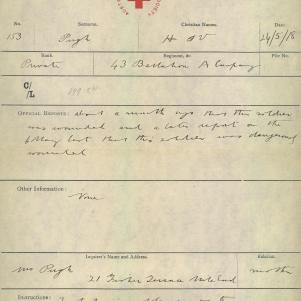 No. Surname. Christian Names. Date.
153 Pugh H V 24/5/18
Rank. Regiment, &c. File No.
Private 43 Battalion A Company
C/L
OFFICIAL REPORTS: About a month ago that this soldier
was wounded and a later report on the
that this soldier was dangerously
wounded
Other Information:
None
Inquirer's Name and Address. Relation.
Mrs Pugh mother
21 Terrace
Instructions: